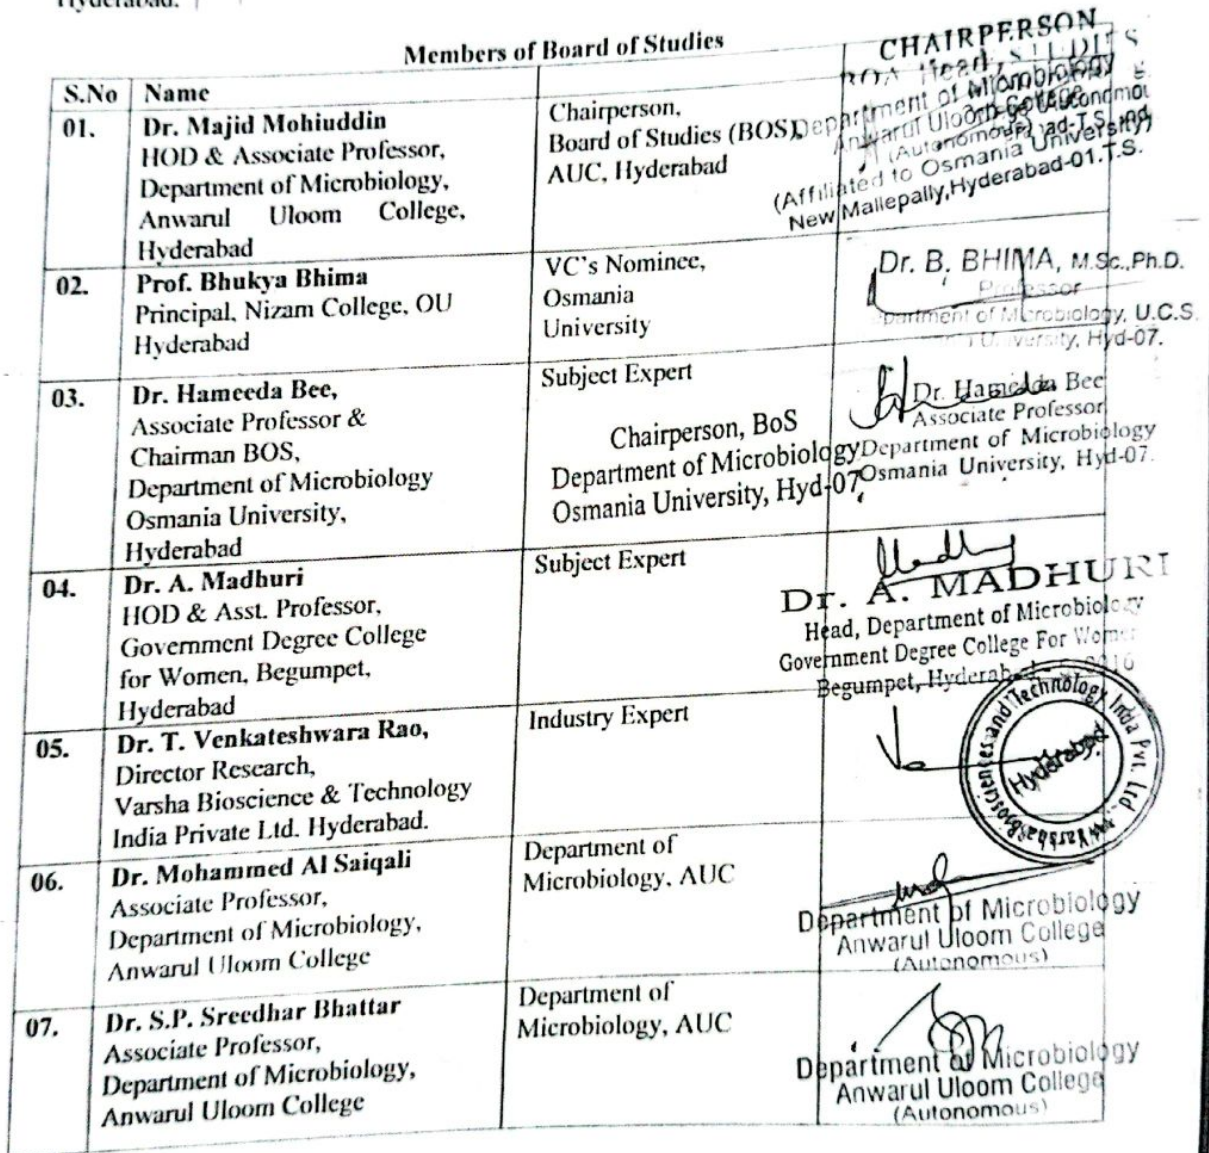 Hyderabad.
Members of Board of Studies
S.No Name
01. Dr. Majid Mohiuddin
HOD & Associate Professor,
Department of Microbiology,
Anwarul Uloom College,
Hyderabad
Chairperson,
Board of Studies (BOS),
AUC, Hyderabad
CHAIRPERSON
Head, STUDIES
Department of Microbiology
Anwarul Uloom College
(Autonomous)
(Affiliated to Osmania University)
New Mallepally,Hyderabad-01.T.S.
02. Prof. Bhukya Bhima
Principal, Nizam College, OU
Hyderabad
VC's Nominee,
Osmania
University
Dr. B. BHIMA, M.Sc.,Ph.D.
Professor
partment of Microbiology, U.C.S.
University, Hyd-07.
03. Dr. Hameeda Bee,
Associate Professor &
Chairman BOS,
Department of Microbiology
Osmania University,
Hyderabad
Subject Expert
Chairperson, BoS
Department of Microbiology
Osmania University, Hyd-07
Dr. Hameeda Bee
Associate Professor
Department of Microbiology
Osmania University, Hyd-07.
04. Dr. A. Madhuri
HOD & Asst. Professor,
Government Degree College
for Women, Begumpet,
Hyderabad
Subject Expert
Dr. A. MADHURI
Head, Department of Microbiology
Government Degree College For Women
Begumpet, Hyderabad
05. Dr. T. Venkateshwara Rao,
Director Research,
Varsha Bioscience & Technology
India Private Ltd. Hyderabad.
Industry Expert
Varsha Biosciences and Technology India Pvt. Ltd.
Hyderabad.
06. Dr. Mohammed Al Saiqali
Associate Professor,
Department of Microbiology,
Anwarul Uloom College
Department of
Microbiology, AUC
Department of Microbiology
Anwarul Uloom College
(Autonomous)
07. Dr. S.P. Sreedhar Bhattar
Associate Professor,
Department of Microbiology,
Anwarul Uloom College
Department of
Microbiology, AUC
Department of Microbiology
Anwarul Uloom College
(Autonomous)